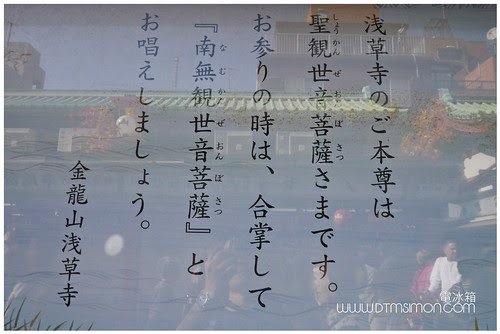 浅草寺のご本尊は
聖観世音菩薩さまです。
しょうかんぜおんぼさつ
お参りの時は、合掌して
『南無観世音菩薩』と
なむかんぜおんぼさつ
お唱えしましょう。
金龍山浅草寺
電冰箱
www.DTMSIMON.COM